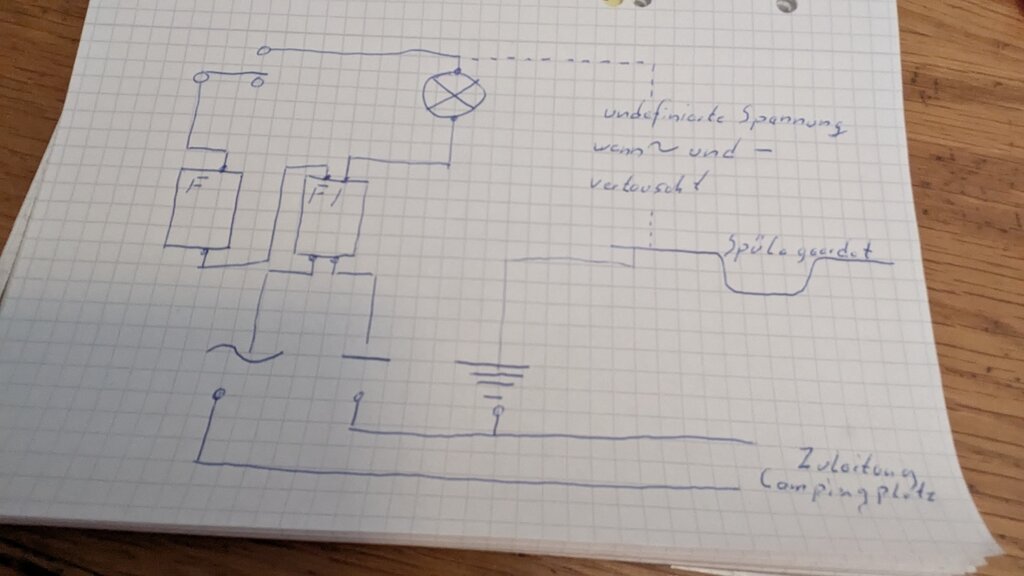 undefinierte Spannung
wenn ~ und -
vertauscht
F
FI
Spüle geerdet
Zuleitung
Campingplatz